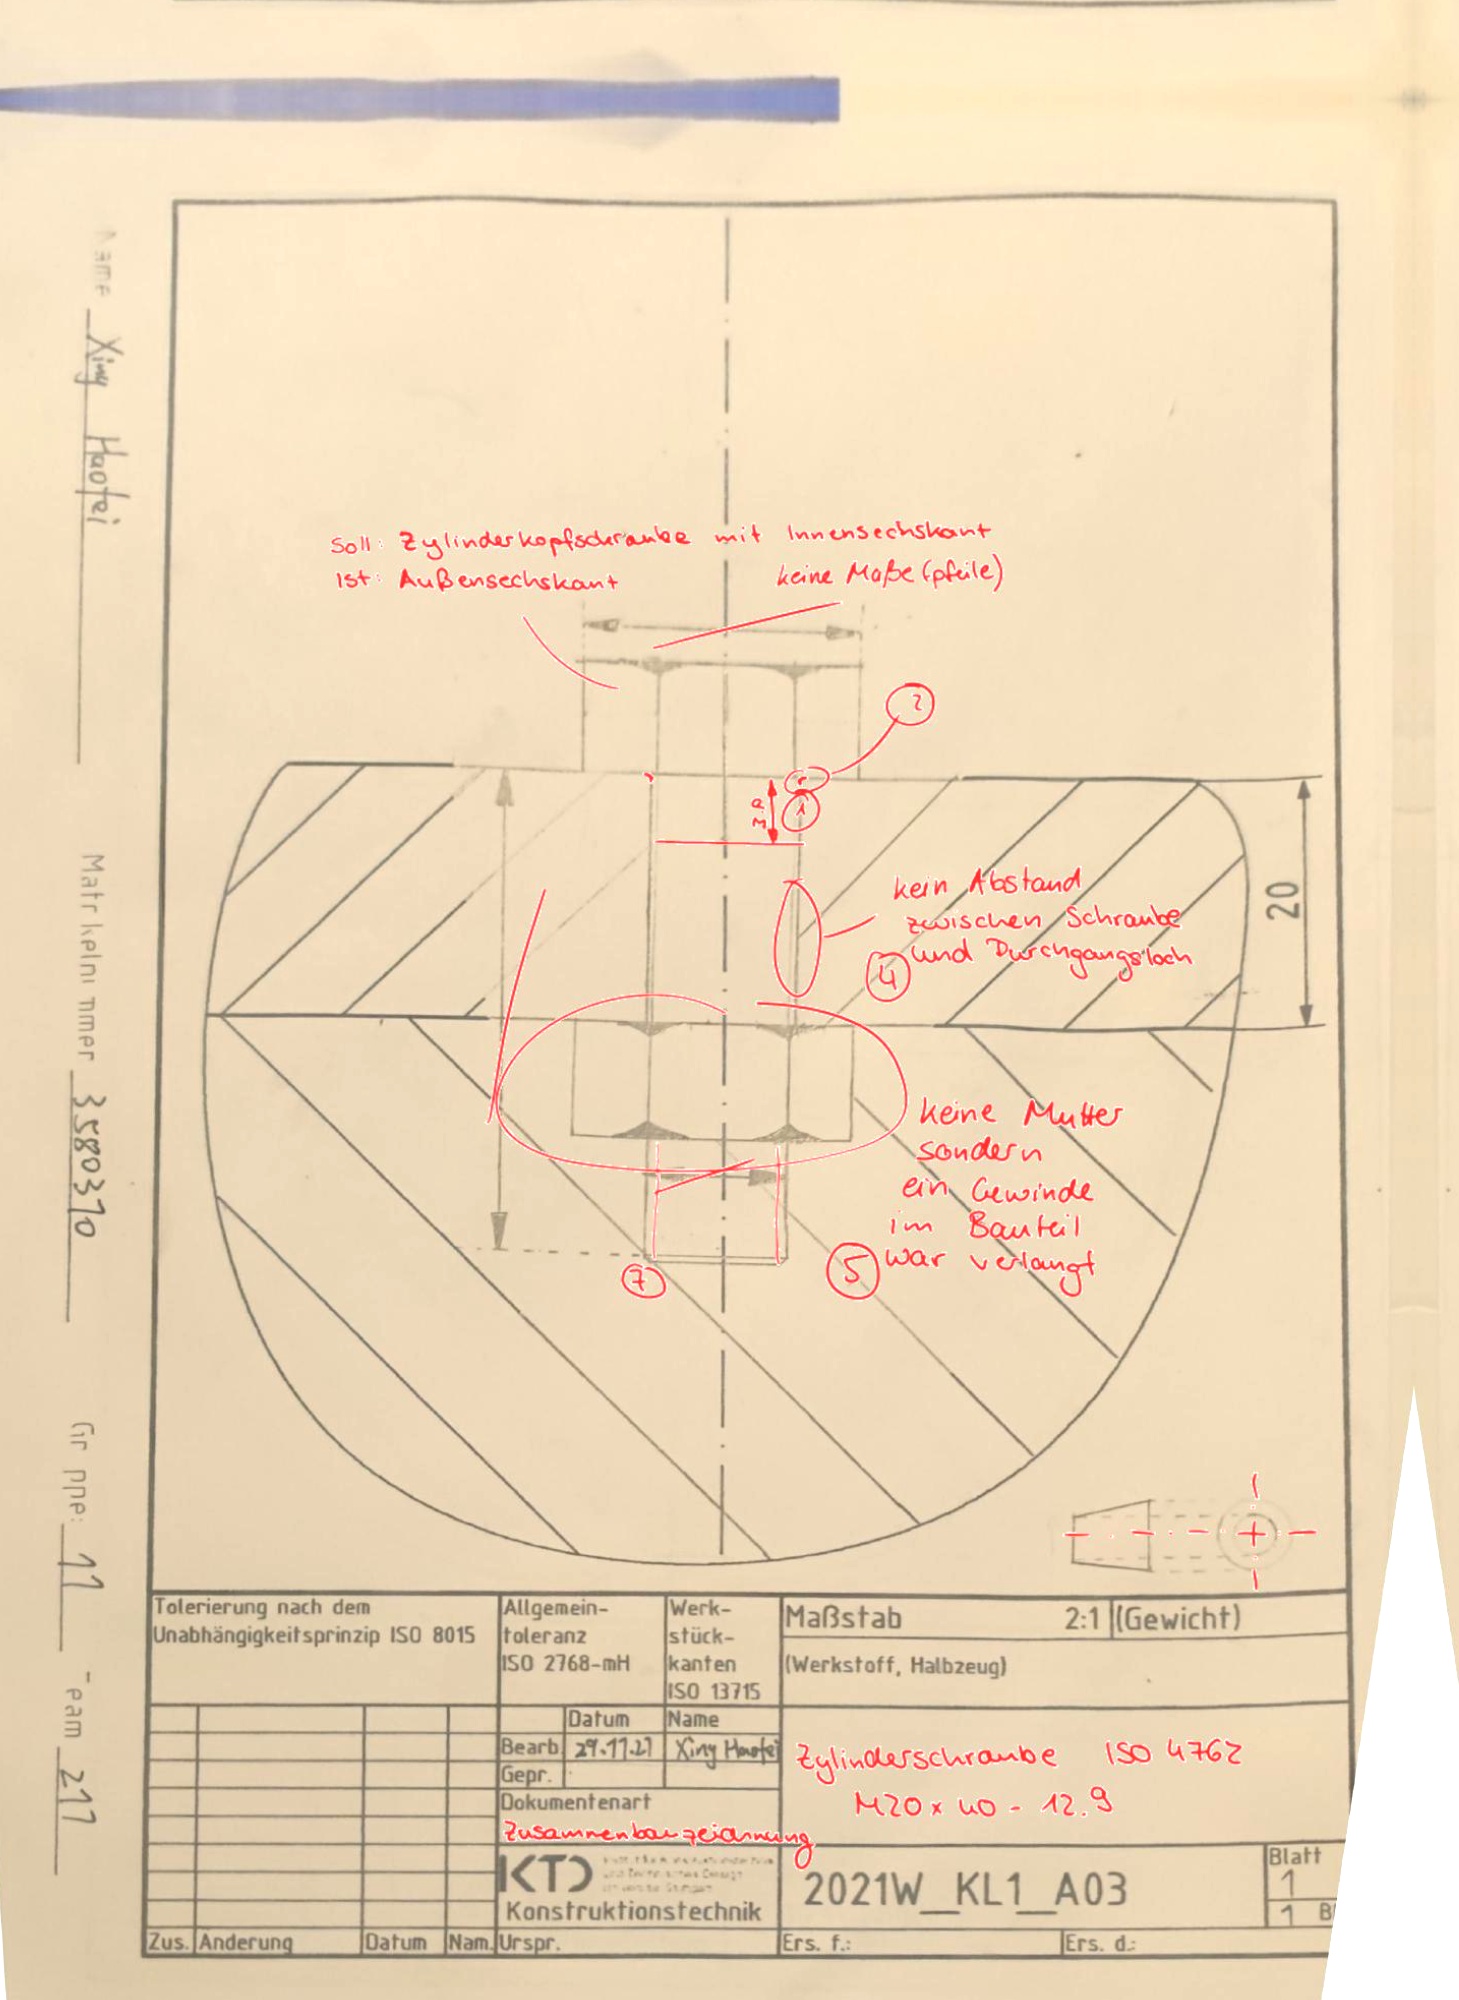 Name Xing Haofei
Matrikelnummer 3580370
Gruppe: 11
Team 217
Soll: Zylinderkopfschraube mit Innensechskant
Ist: Außensechskant
keine Maße (pfeile)
2
1
kein Abstand
zwischen Schraube
und Durchgangsloch
4
20
keine Mutter
sondern
ein Gewinde
im Bauteil
war verlangt
5
7
Tolerierung nach dem
Unabhängigkeitsprinzip ISO 8015
Allgemein-
toleranz
ISO 2768-mH
Werk-
stück-
kanten
ISO 13715
Maßstab 2:1 (Gewicht)
(Werkstoff, Halbzeug)
Datum Name
Bearb. 29.11.21 Xing Haofei
Gepr.
Zylinderschraube ISO 4762
M20 x 40 - 12.9
Dokumentenart
Zusammenbauzeichnung
KTD
Konstruktionstechnik
2021W_KL1_A03
Blatt
1
1 B
Zus. Änderung Datum Nam. Urspr. Ers. f.: Ers. d.: